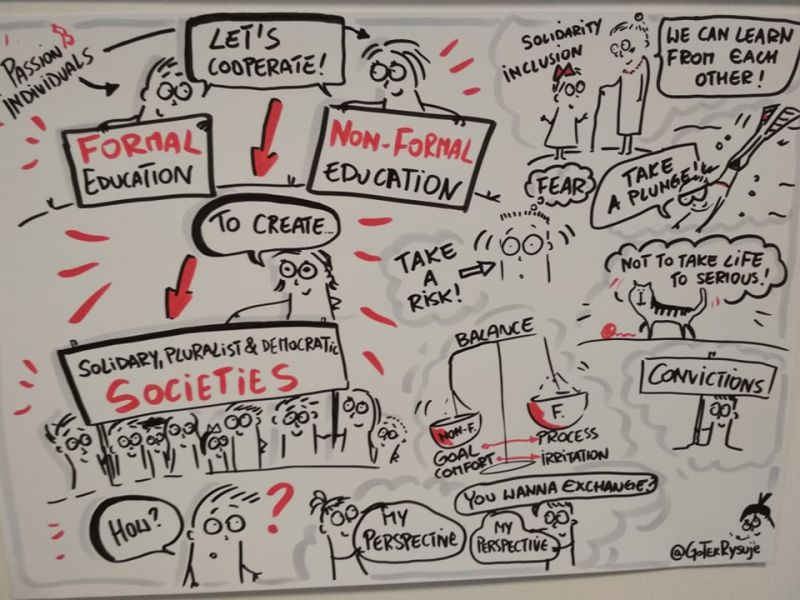 PASSION
INDIVIDUALS
LET'S
COOPERATE!
FORMAL
EDUCATION
NON-FORMAL
EDUCATION
SOLIDARITY
INCLUSION
WE CAN LEARN
FROM EACH
OTHER!
TO CREATE...
FEAR
TAKE
A PLUNGE!
TAKE
A
RISK!
NOT TO TAKE LIFE
TO SERIOUS!
SOLIDARY, PLURALIST & DEMOCRATIC
SOCIETIES
BALANCE
NON-F.
F.
GOAL
PROCESS
COMFORT
IRRITATION
CONVICTIONS
HOW?
?
MY
PERSPECTIVE
YOU WANNA EXCHANGE?
MY
PERSPECTIVE
@GoTexRysuje